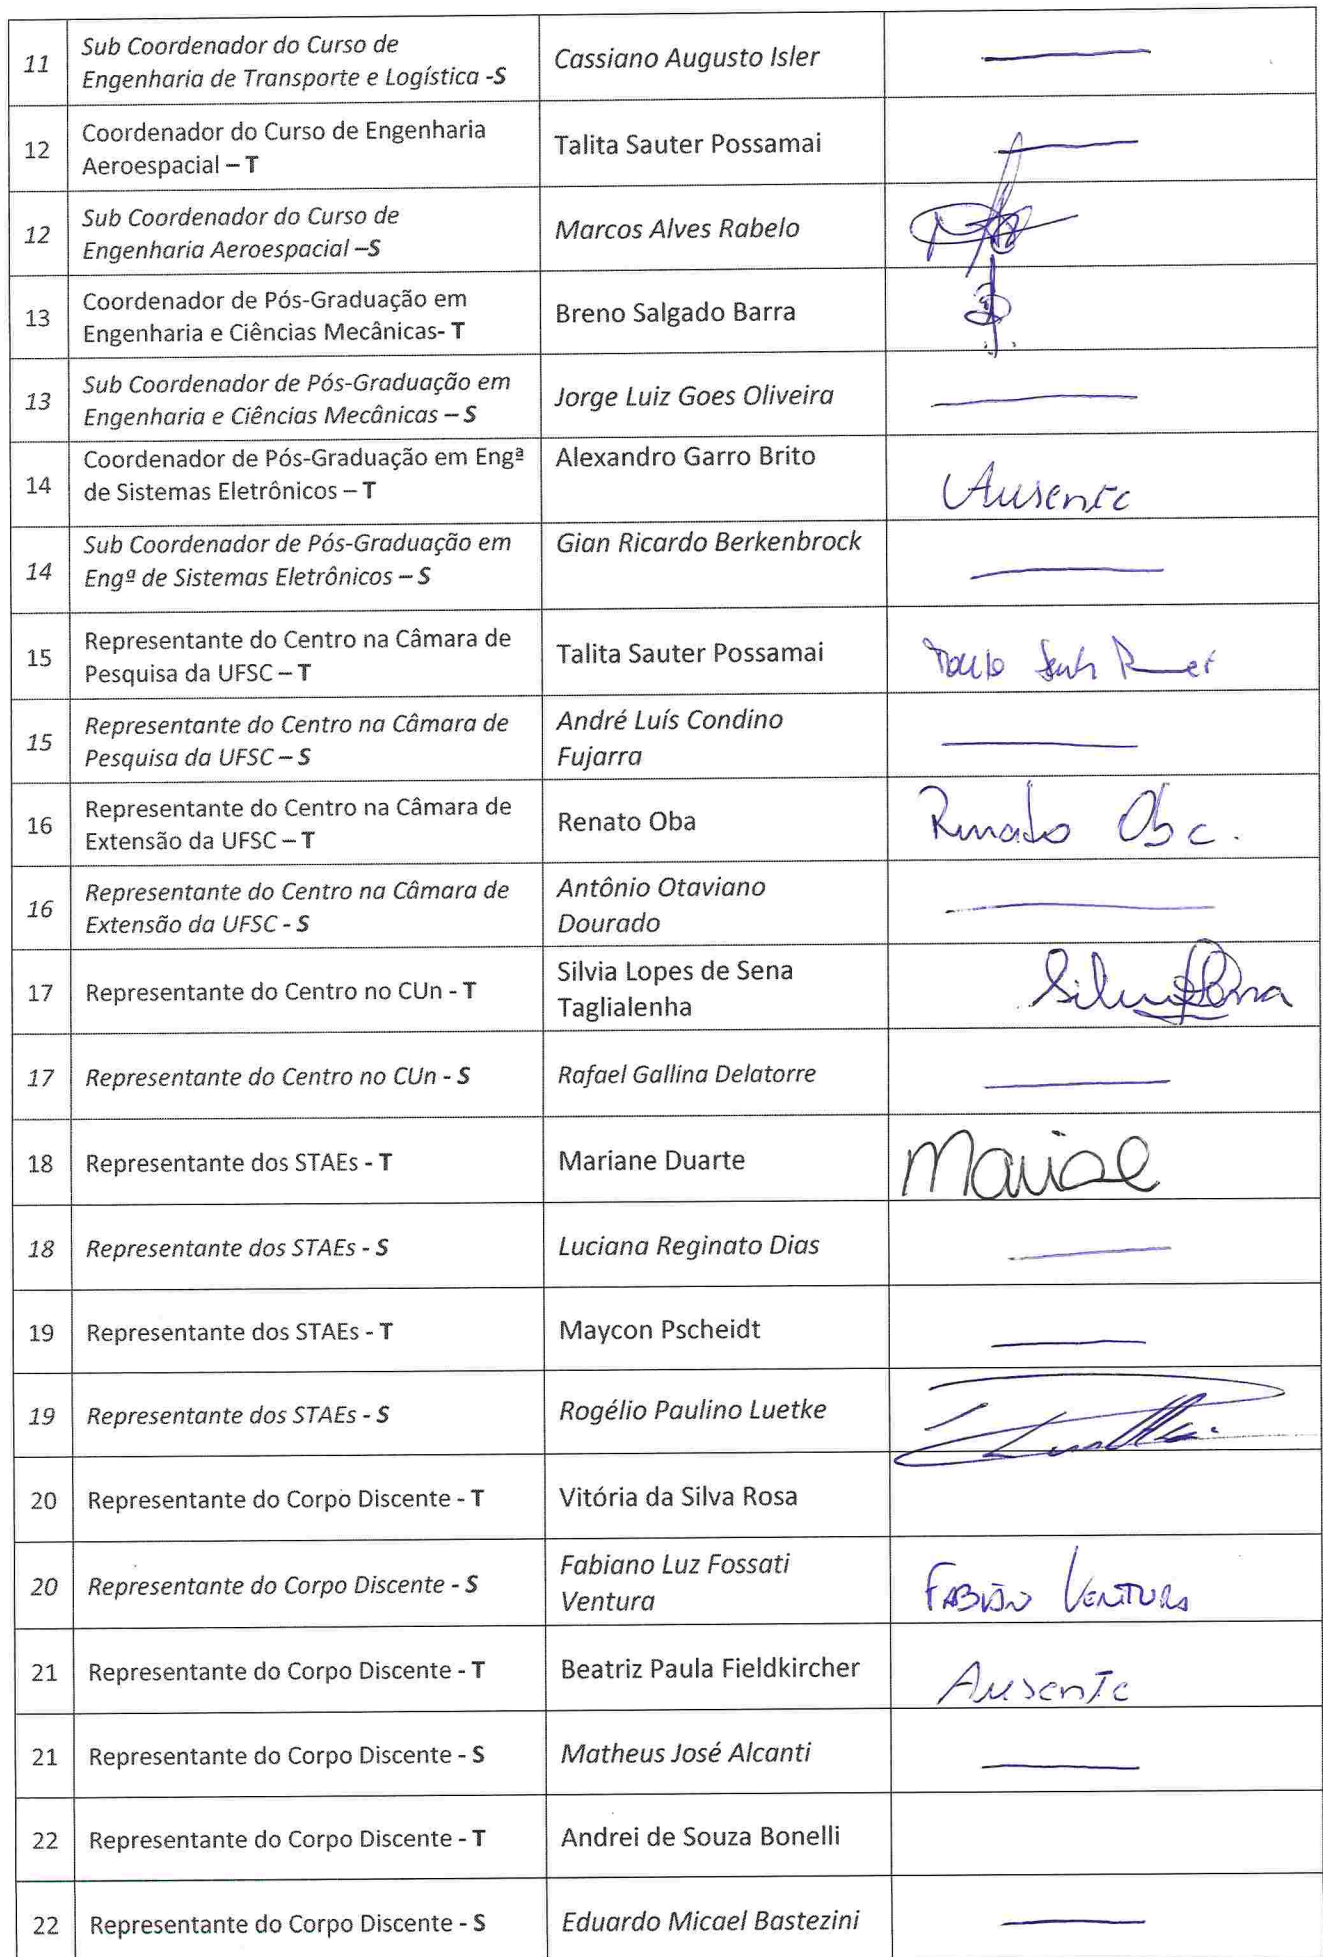 11
Sub Coordenador do Curso de
Engenharia de Transporte e Logística -S
Cassiano Augusto Isler
12
Coordenador do Curso de Engenharia
Aeroespacial – T
Talita Sauter Possamai
12
Sub Coordenador do Curso de
Engenharia Aeroespacial –S
Marcos Alves Rabelo
13
Coordenador de Pós-Graduação em
Engenharia e Ciências Mecânicas- T
Breno Salgado Barra
13
Sub Coordenador de Pós-Graduação em
Engenharia e Ciências Mecânicas – S
Jorge Luiz Goes Oliveira
14
Coordenador de Pós-Graduação em Engª
de Sistemas Eletrônicos – T
Alexandro Garro Brito
Ausente
14
Sub Coordenador de Pós-Graduação em
Engª de Sistemas Eletrônicos – S
Gian Ricardo Berkenbrock
15
Representante do Centro na Câmara de
Pesquisa da UFSC – T
Talita Sauter Possamai
15
Representante do Centro na Câmara de
Pesquisa da UFSC – S
André Luís Condino
Fujarra
16
Representante do Centro na Câmara de
Extensão da UFSC – T
Renato Oba
Renato Oba.
16
Representante do Centro na Câmara de
Extensão da UFSC - S
Antônio Otaviano
Dourado
17
Representante do Centro no CUn - T
Silvia Lopes de Sena
Taglialenha
17
Representante do Centro no CUn - S
Rafael Gallina Delatorre
18
Representante dos STAEs - T
Mariane Duarte
18
Representante dos STAEs - S
Luciana Reginato Dias
19
Representante dos STAEs - T
Maycon Pscheidt
19
Representante dos STAEs - S
Rogélio Paulino Luetke
20
Representante do Corpo Discente - T
Vitória da Silva Rosa
20
Representante do Corpo Discente - S
Fabiano Luz Fossati
Ventura
FABIANO VENTURA
21
Representante do Corpo Discente - T
Beatriz Paula Fieldkircher
Ausente
21
Representante do Corpo Discente - S
Matheus José Alcanti
22
Representante do Corpo Discente - T
Andrei de Souza Bonelli
22
Representante do Corpo Discente - S
Eduardo Micael Bastezini